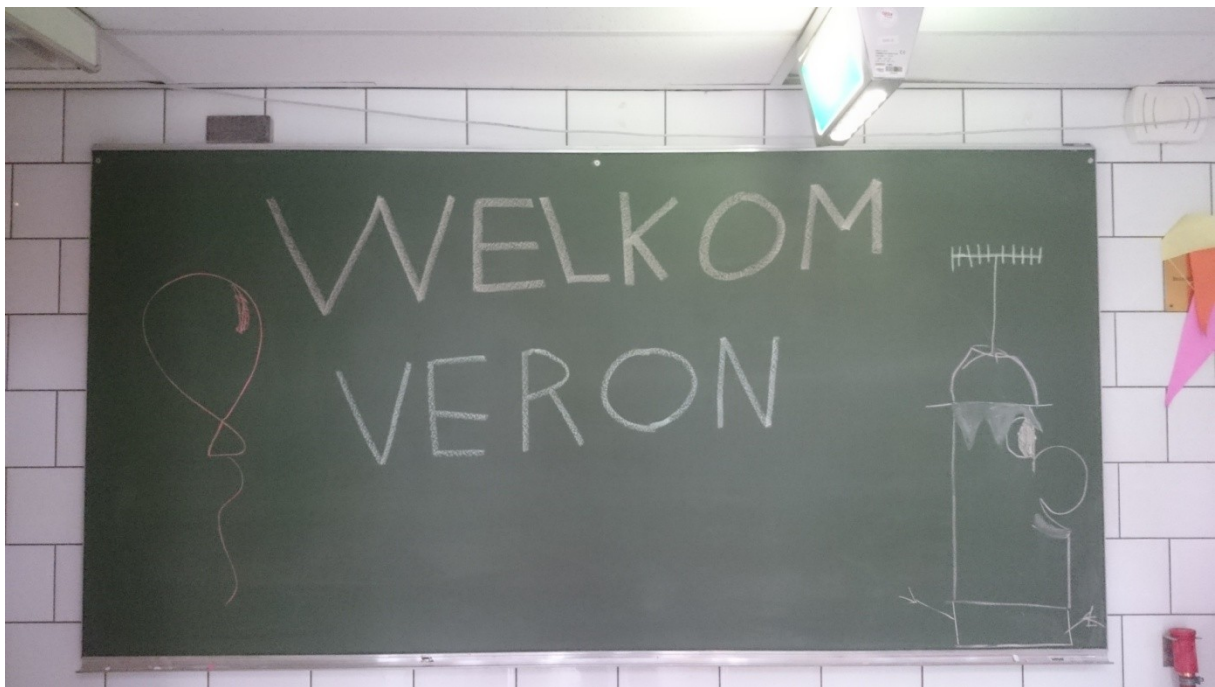 WELKOM
VERON